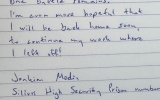 one obstacle remains.
I'm even more hopeful that
I will be back home soon,
to continue my work where
I left off!
Jenkin Modi
Silius High Security Prison number